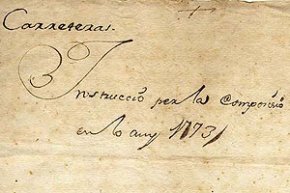 Carreteras.
Instrucció per la Composició
en lo any 1773